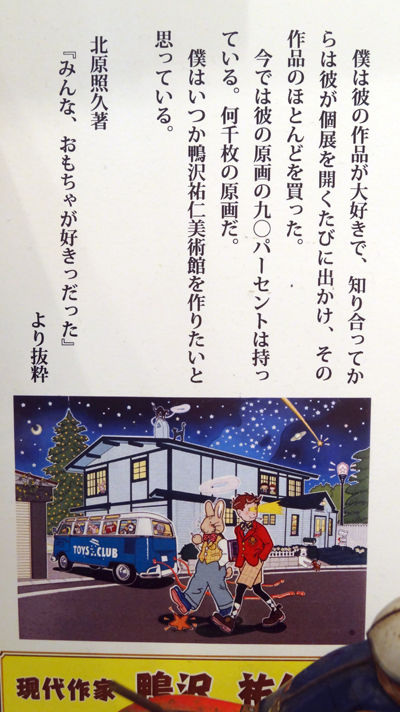 僕は彼の作品が大好きで、知り合ってか
らは彼が個展を開くたびに出かけ、その
作品のほとんどを買った。
今では彼の原画の九〇パーセントは持っ
ている。何千枚の原画だ。
僕はいつか鴨沢祐仁美術館を作りたいと
思っている。
北原照久著
『みんな、おもちゃが好きっだった』
より抜粋
TOYS CLUB
現代作家 鴨沢 祐